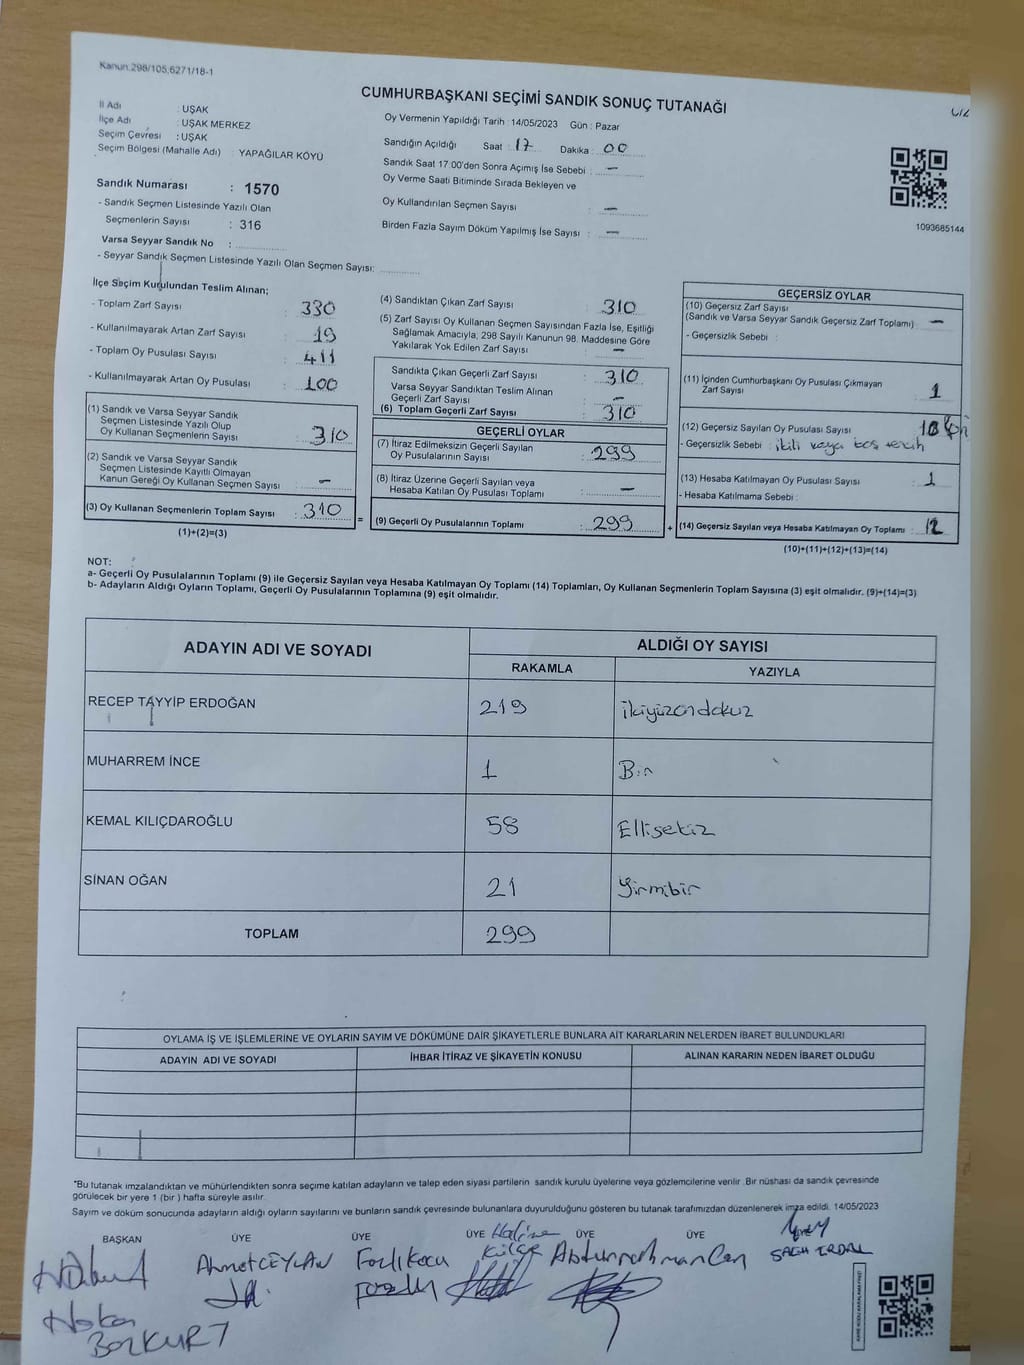 Kanun:298/105,6271/18-1
CUMHURBAŞKANI SEÇİMİ SANDIK SONUÇ TUTANAĞI
İl Adı : UŞAK
İlçe Adı : UŞAK MERKEZ
Seçim Çevresi : UŞAK
Seçim Bölgesi (Mahalle Adı) : YAPAĞILAR KÖYÜ
Sandık Numarası : 1570
- Sandık Seçmen Listesinde Yazılı Olan
Seçmenlerin Sayısı : 316
Varsa Seyyar Sandık No :
- Seyyar Sandık Seçmen Listesinde Yazılı Olan Seçmen Sayısı:
Oy Vermenin Yapıldığı Tarih : 14/05/2023 Gün : Pazar
Sandığın Açıldığı Saat : 17 Dakika : 00
Sandık Saat 17 00'den Sonra Açımış İse Sebebi : —
Oy Verme Saati Bitiminde Sırada Bekleyen ve
Oy Kullandırılan Seçmen Sayısı : —
Birden Fazla Sayım Döküm Yapılmış İse Sayısı : —
1093685144
İlçe Seçim Kurulundan Teslim Alınan;
- Toplam Zarf Sayısı : 330
- Kullanılmayarak Artan Zarf Sayısı : 19
- Toplam Oy Pusulası Sayısı : 411
- Kullanılmayarak Artan Oy Pusulası : 100
(1) Sandık ve Varsa Seyyar Sandık
Seçmen Listesinde Yazılı Olup
Oy Kullanan Seçmenlerin Sayısı : 310
(2) Sandık ve Varsa Seyyar Sandık
Seçmen Listesinde Kayıtlı Olmayan
Kanun Gereği Oy Kullanan Seçmen Sayısı : —
(3) Oy Kullanan Seçmenlerin Toplam Sayısı : 310
(1)+(2)=(3)
=
(4) Sandıktan Çıkan Zarf Sayısı : 310
(5) Zarf Sayısı Oy Kullanan Seçmen Sayısından Fazla İse, Eşitliği
Sağlamak Amacıyla, 298 Sayılı Kanunun 98. Maddesine Göre
Yakılarak Yok Edilen Zarf Sayısı : —
Sandıkta Çıkan Geçerli Zarf Sayısı : 310
Varsa Seyyar Sandıktan Teslim Alınan
Geçerli Zarf Sayısı : —
(6) Toplam Geçerli Zarf Sayısı : 310
GEÇERLİ OYLAR
(7) İtiraz Edilmeksizin Geçerli Sayılan
Oy Pusulalarının Sayısı : 299
(8) İtiraz Üzerine Geçerli Sayılan veya
Hesaba Katılan Oy Pusulası Toplamı : —
(9) Geçerli Oy Pusulalarının Toplamı : 299
+
GEÇERSİZ OYLAR
(10) Geçersiz Zarf Sayısı
(Sandık ve Varsa Seyyar Sandık Geçersiz Zarf Toplamı) : —
- Geçersizlik Sebebi :
(11) İçinden Cumhurbaşkanı Oy Pusulası Çıkmayan
Zarf Sayısı : 1
(12) Geçersiz Sayılan Oy Pusulası Sayısı : 10
- Geçersizlik Sebebi : ikili veya boş tercih
(13) Hesaba Katılmayan Oy Pusulası Sayısı : 1
- Hesaba Katılmama Sebebi :
(14) Geçersiz Sayılan veya Hesaba Katılmayan Oy Toplamı : 12
(10)+(11)+(12)+(13)=(14)
NOT:
a- Geçerli Oy Pusulalarının Toplamı (9) ile Geçersiz Sayılan veya Hesaba Katılmayan Oy Toplamı (14) Toplamları, Oy Kullanan Seçmenlerin Toplam Sayısına (3) eşit olmalıdır. (9)+(14)=(3)
b- Adayların Aldığı Oyların Toplamı, Geçerli Oy Pusulalarının Toplamına (9) eşit olmalıdır.
ADAYIN ADI VE SOYADI ALDIĞI OY SAYISI
RAKAMLA YAZIYLA
RECEP TAYYİP ERDOĞAN 219 ikiyüzondokuz
MUHARREM İNCE 1 Bir
KEMAL KILIÇDAROĞLU 58 Ellisekiz
SİNAN OĞAN 21 Yirmibir
TOPLAM 299
OYLAMA İŞ VE İŞLEMLERİNE VE OYLARIN SAYIM VE DÖKÜMÜNE DAİR ŞİKAYETLERLE BUNLARA AİT KARARLARIN NELERDEN İBARET BULUNDUKLARI
ADAYIN ADI VE SOYADI İHBAR İTİRAZ VE ŞİKAYETİN KONUSU ALINAN KARARIN NEDEN İBARET OLDUĞU
"Bu tutanak imzalandıktan ve mühürlendikten sonra seçime katılan adayların ve talep eden siyasi partilerin sandık kurulu üyelerine veya gözlemcilerine verilir .Bir nüshası da sandık çevresinde
görülecek bir yere 1 (bir ) hafta süreyle asılır.
Sayım ve döküm sonucunda adayların aldığı oyların sayılarını ve bunların sandık çevresinde bulunanlara duyurulduğunu gösteren bu tutanak tarafımızdan düzenlenerek imza edildi. 14/05/2023
BAŞKAN ÜYE ÜYE ÜYE ÜYE ÜYE
Ahmet CEYLAN Fazlı Kocu Halime Abdurrahman Can
Hakan
BOZKURT